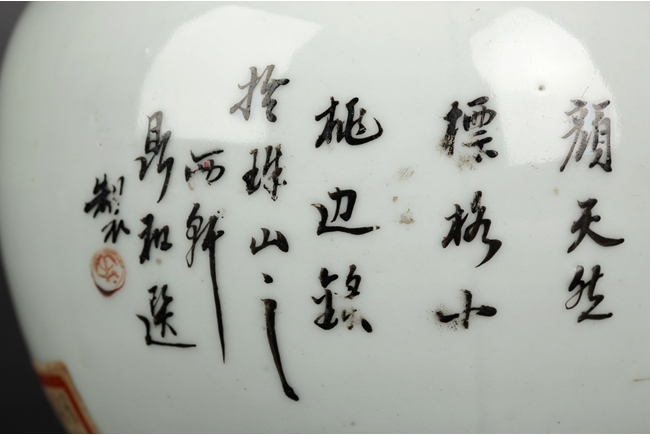 顏天然
標格小
桃边
於珠山之
西軒
鼎和選
製